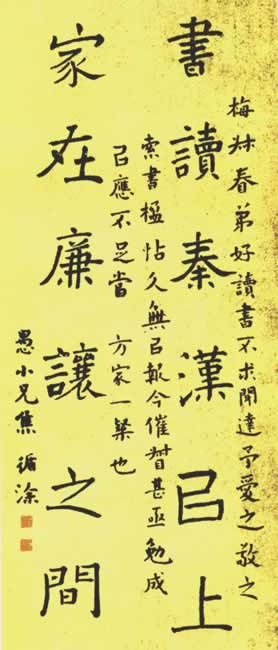 梅叔春弟好讀書不求聞達予愛之敬之
書讀秦漢㠯上
索書楹帖久無㠯報今催督甚亟勉成
㠯應不足當 方家一粲也
家在廉讓之間
愚小兄焦循涂